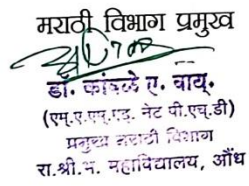 मराठी विभाग प्रमुख
डॉ. कांबळे ए. वाय्.
(एम.ए.एम्.एड्. नेट पी.एच्.डी)
प्रमुख मराठी विभाग
रा.श्री.भ. महाविद्यालय, औंध